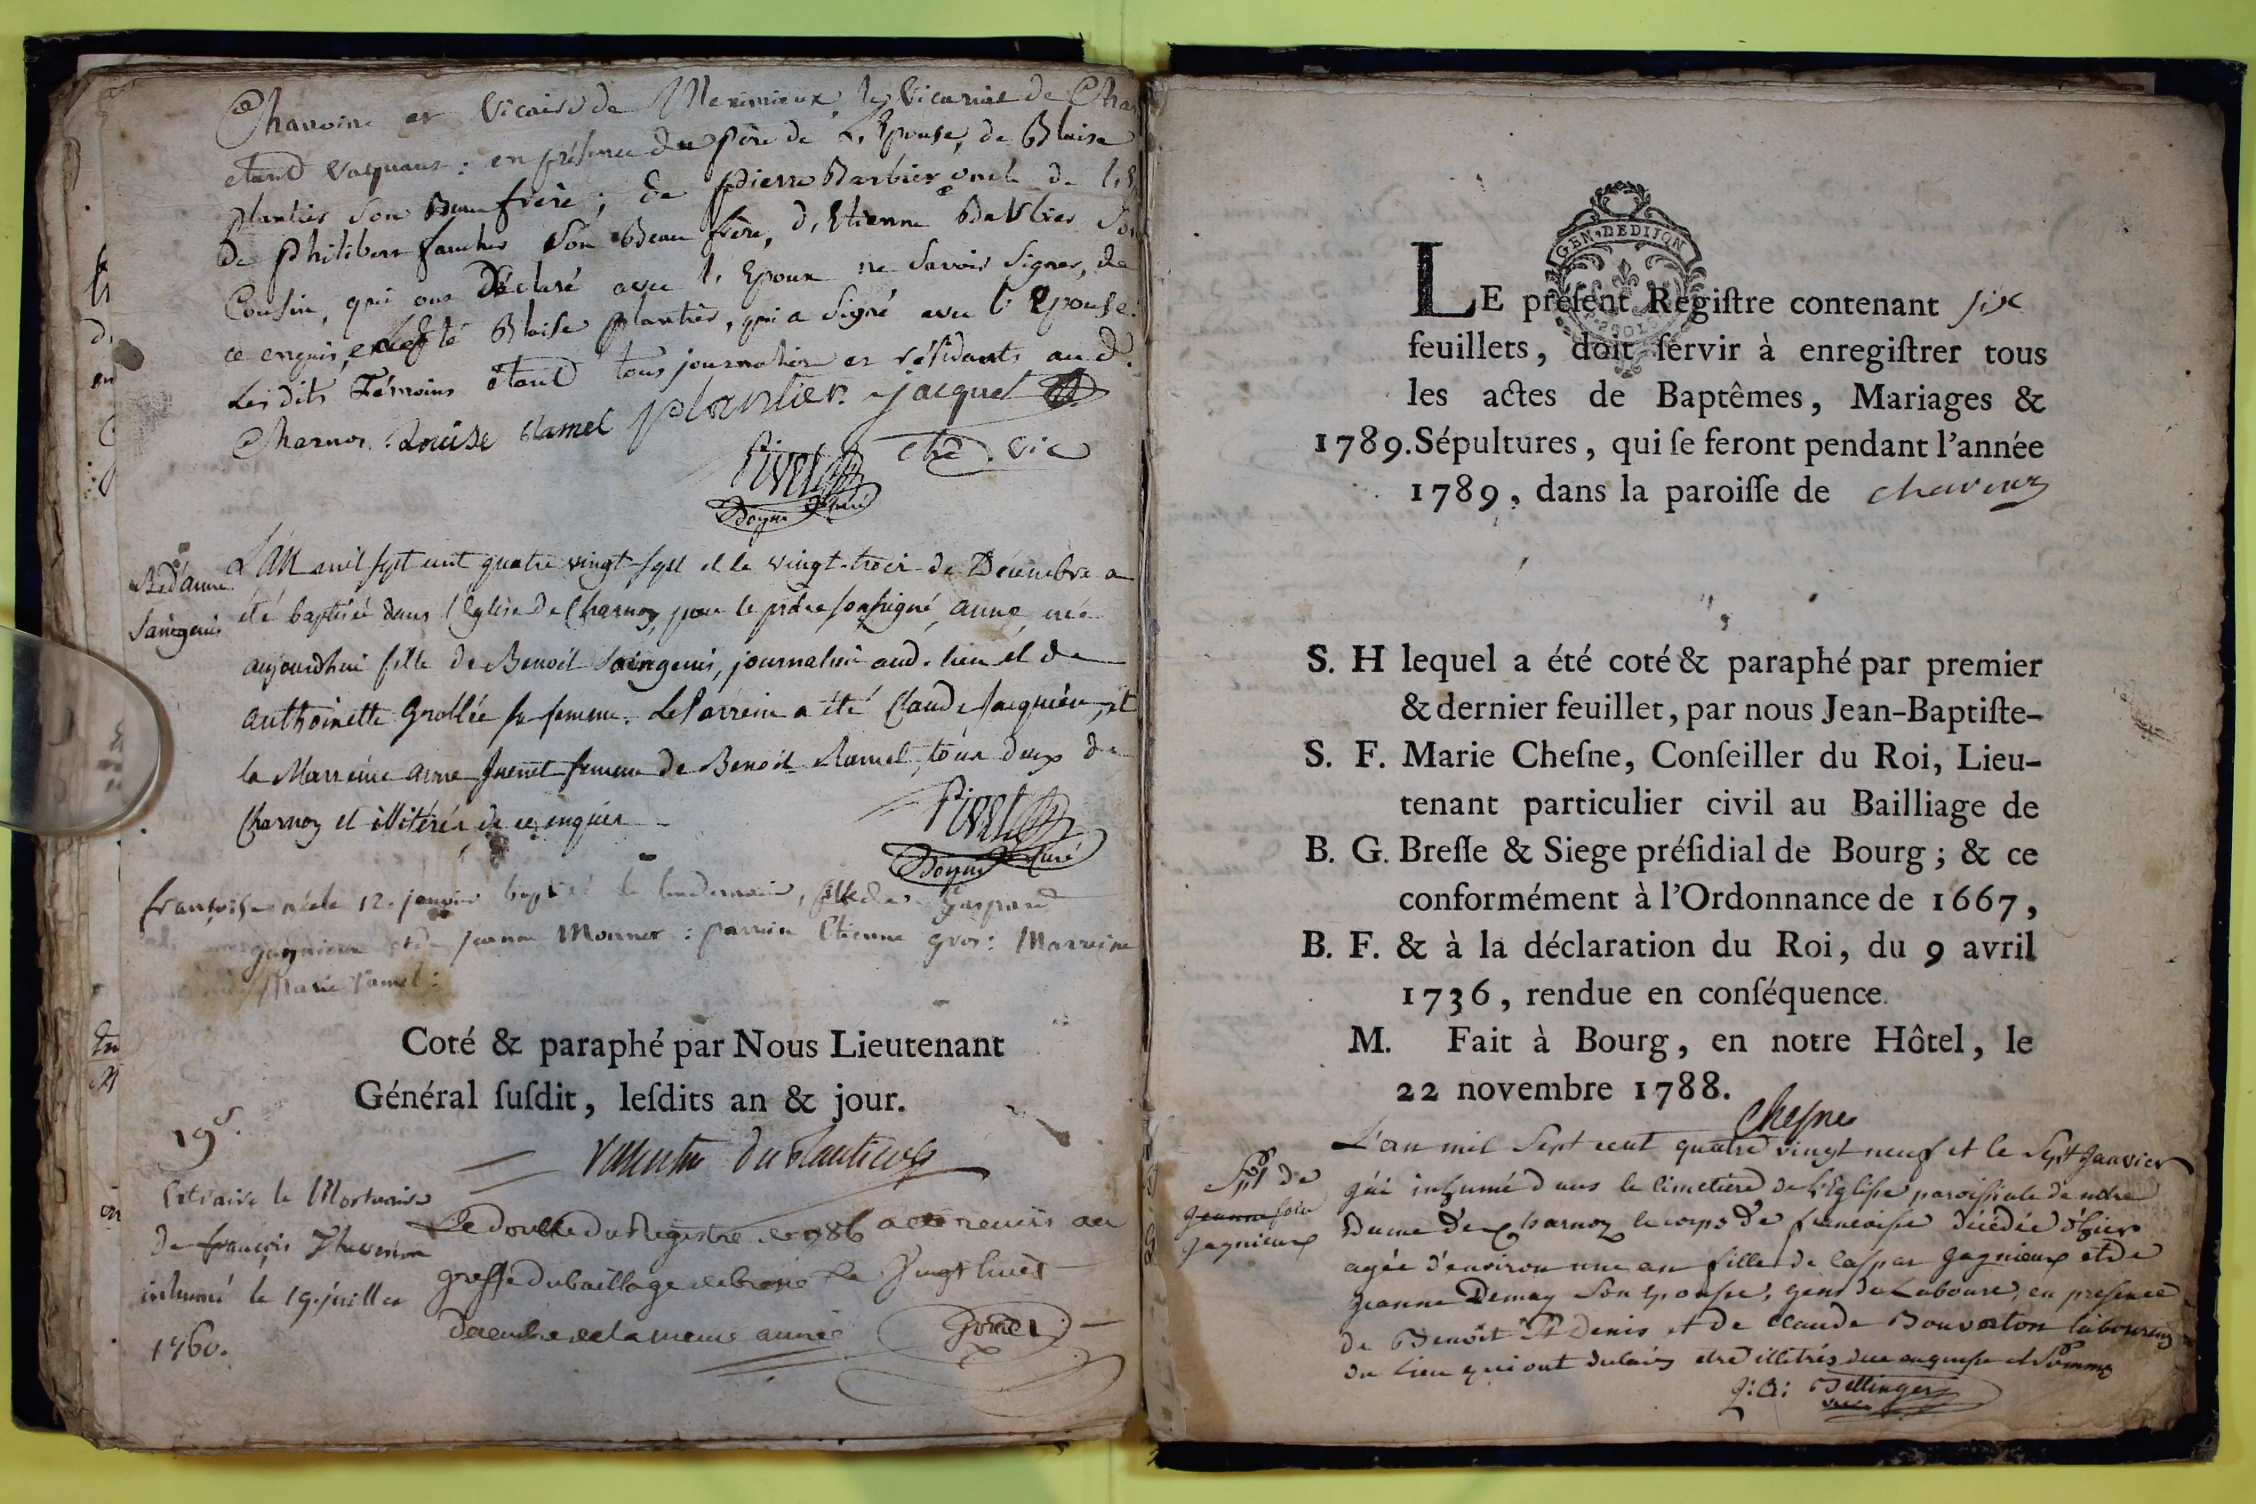 Chanoine et Vicaire de Meximieux, le Vicariat de Char
etant vaquant: en présence du père de L'Epouse, de Blaise
plantier son Beau frère; de pierre Barbier oncle de l'E
de Philibert faucher Son Beau frère, d'Etienne Son
Cousin, qui ont Déclaré avec l'Epoux ne Savoir Signer, de
ce enquis, excepté Blaise plantier, qui a Signé avec l'Epouse.
Lesdits Témoins étant tous journaliers et résidants aud.
Charnoz. Louise Ramel plantier. jacquet
che. vic
Pivet
Doyen Curé
Bd. d'anne
Saingenis
L'An mil sept cent quatre vingt-sept et le vingt-trois de Décembre a
été baptisée dans l'Eglise de Charnoz, par le prêtre soussigné, anne, née
aujourdhui fille de Benoit Saingenis, journalier aud. lieu et de
authoinette Grollée sa femme. Le Parrein a été Claude Jacquiéu, et
la Marreine anne Juenet femme de Benoit Ramel, tous deux de
Charnoz et illitérés de ce enquis
Pivet
Doyen Curé
françoise née le 12. janvier baptisé le lendemain, fille de Gaspard
gagnieux et de jeanne Monner: parrein Etienne gros: Marreine
Marie ramel:
Coté & paraphé par Nous Lieutenant
Général suſdit, leſdits an & jour.
19s.
Valentin Du Plantier
Extraire le Mortuaire
De françois Thevenon
inhumé le 19. juillet
1760.
Le Double Du Registre de 1786 a été remis au
greffe du bailliage de bresse le vingt huit
decembre de la meme année
LE préſent Regiſtre contenant six
feuillets, doit ſervir à enregiſtrer tous
les actes de Baptêmes, Mariages &
1789. Sépultures, qui ſe feront pendant l'année
1789, dans la paroiſſe de charnoz
GEN. DE DIJON
S. H lequel a été coté & paraphé par premier
& dernier feuillet, par nous Jean-Baptiſte-
S. F. Marie Cheſne, Conſeiller du Roi, Lieu-
tenant particulier civil au Bailliage de
B. G. Breſſe & Siege préſidial de Bourg; & ce
conformément à l'Ordonnance de 1667,
B. F. & à la déclaration du Roi, du 9 avril
1736, rendue en conſéquence.
M. Fait à Bourg, en notre Hôtel, le
22 novembre 1788.
Chesne
Spt de
jeanne
gagnieux
L'an mil Sept cent quatre vingt neuf et le Sept Janvier
j'ai inhumé dans le cimetière de l'Eglise paroissiale de notre
Dame de Charnoz le corps de francoise décédée d'hier
agée d'environ une an fille de Caspar gagnieux et de
jeanne Demay Son epouse, gens de Laboure, en presence
de Benoit St Denis et de claude Bouvarton laboureur
du Lieu qui ont
J: A: Bellinger
vic